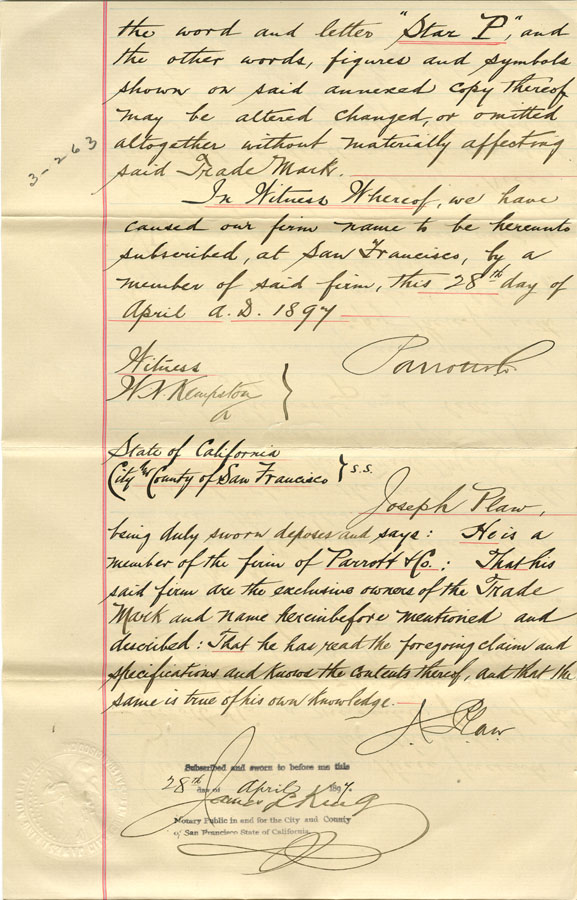 the word and letter "Star P", and
the other words, figures and symbols
shown on said annexed copy thereof
may be altered changed, or omitted
altogether without materially affecting
said Trade Mark.
3-263
In Witness Whereof, we have
caused our firm name to be hereunto
subscribed, at San Francisco, by a
member of said firm, this 28th day of
April A.D. 1897
Parrott & Co.
Witness
W. N. Kempston
State of California
City & County of San Francisco } S.S.
Joseph Plaw,
being duly sworn deposes and says: He is a
member of the firm of Parrott & Co.: That his
said firm are the exclusive owners of the Trade
Mark and name hereinbefore mentioned and
described: That he has read the foregoing claim and
specifications and knows the contents thereof, and that the
same is true of his own knowledge.
J. Plaw.
Subscribed and sworn to before me this
28th day of April 1897.
James L. King
Notary Public in and for the City and County
of San Francisco State of California.